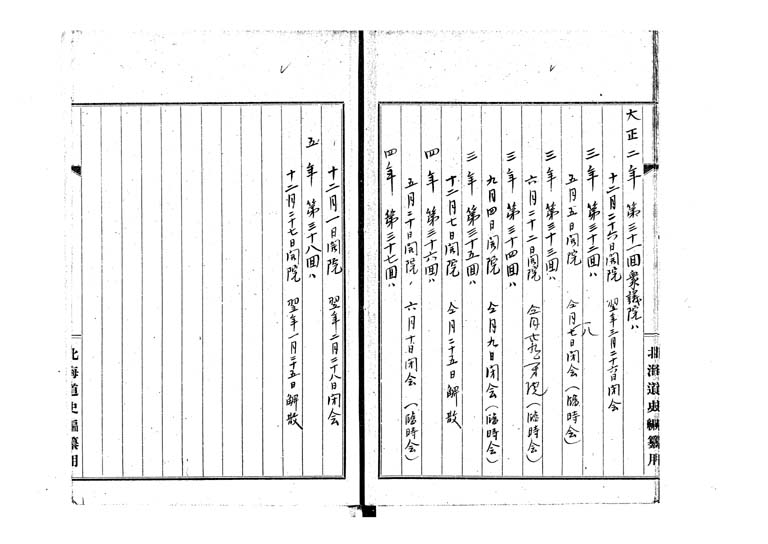 大正二年 第三十一回衆議院〃
十二月二十六日開院 翌年三月二十六日閉会
三年 第三十二回〃
五月五日開院 仝月七日閉会(臨時会)
三年 第三十三回〃
六月二十二日開院 仝月 院(臨時会)
三年 第三十四回〃
九月四日開院 仝月九日閉会(臨時会)
三年 第三十五回〃
十二月七日開院 仝月二十五日解散
四年 第三十六回〃
五月二十日開院、六月十日閉会 (臨時会)
四年 第三十七回〃
北海道史編纂用
十二月一日開院 翌年二月二十八日閉会
五年 第三十八回〃
十二月二十七日開院 翌年一月二十五日解散
北海道史編纂用